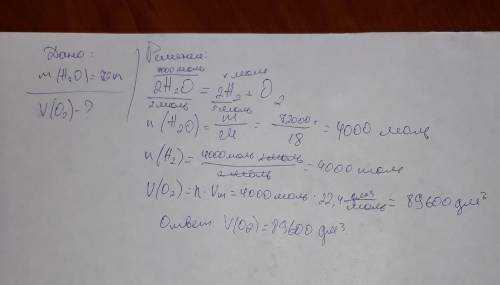 Дано:
m(H₂O)=72 кг
V(O₂)-?
Решение:
4000 моль x моль
2H₂O = 2H₂ + O₂
2 моль 2 моль
n(H₂O) = m/M = 72000/18 = 4000 моль
n(H₂) = 4000 моль · 2 моль / 2 моль = 4000 моль
V(O₂) = n · Vm = 4000 моль · 22,4 дм³/моль = 89600 дм³
Ответ: V(O₂) = 89600 дм³.